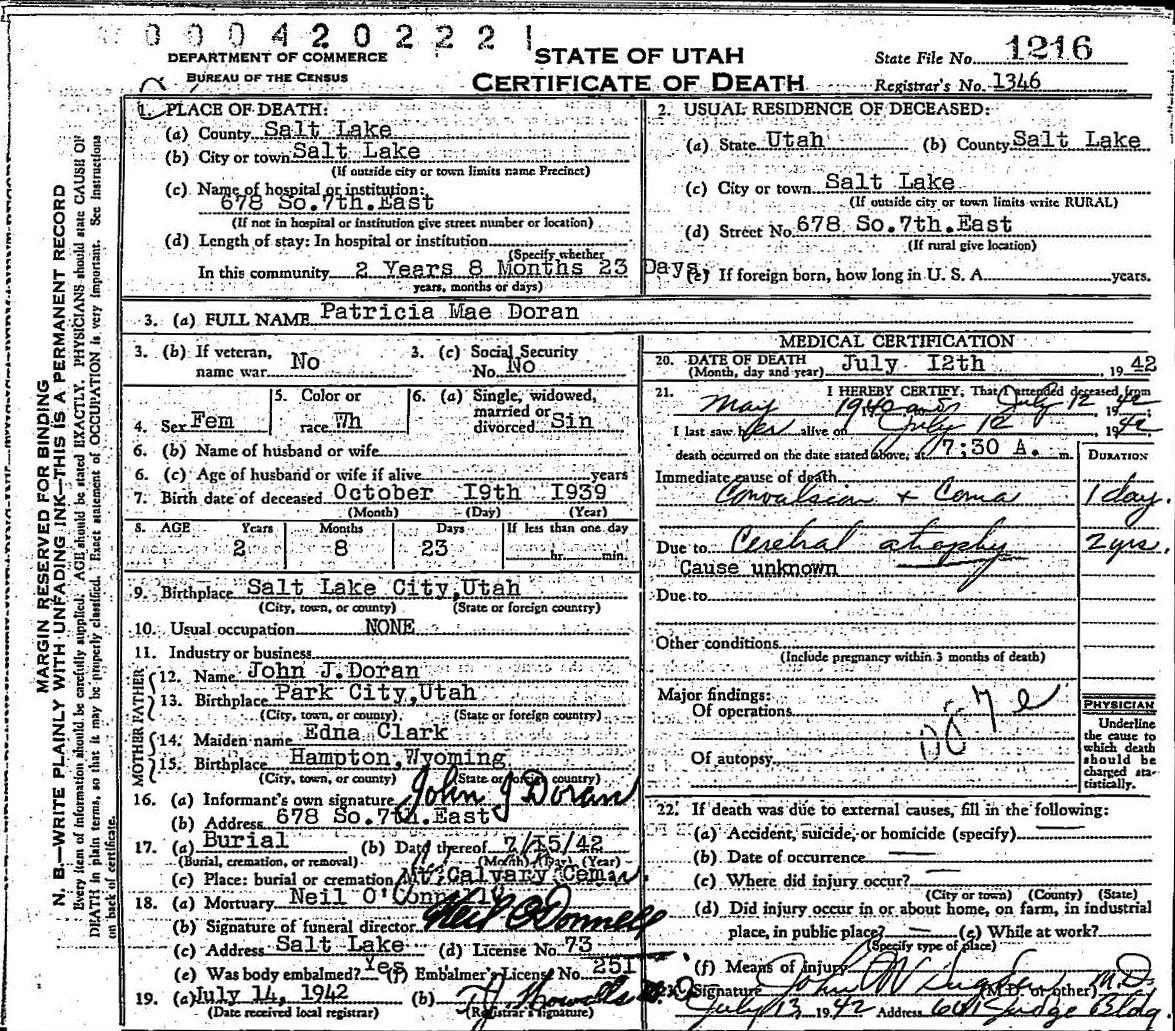 0004202221
DEPARTMENT OF COMMERCE
BUREAU OF THE CENSUS
STATE OF UTAH
CERTIFICATE OF DEATH
State File No. 1216
Registrar's No. 1346
MARGIN RESERVED FOR BINDING
N. B.—WRITE PLAINLY WITH UNFADING INK—THIS IS A PERMANENT RECORD
Every item of information should be carefully supplied. AGE should be stated EXACTLY. PHYSICIANS should state CAUSE OF
DEATH in plain terms, so that it may be properly classified. Exact statement of OCCUPATION is very important. See instructions
on back of certificate.
1. PLACE OF DEATH:
(a) County Salt Lake
(b) City or town Salt Lake
(If outside city or town limits name Precinct)
(c) Name of hospital or institution:
678 So.7th.East
(If not in hospital or institution give street number or location)
(d) Length of stay: In hospital or institution
(Specify whether
In this community 2 Years 8 Months 23 Days
years, months or days)
2. USUAL RESIDENCE OF DECEASED:
(a) State Utah (b) County Salt Lake
(c) City or town Salt Lake
(If outside city or town limits write RURAL)
(d) Street No. 678 So.7th.East
(If rural give location)
(e) If foreign born, how long in U. S. A. years.
3. (a) FULL NAME Patricia Mae Doran
3. (b) If veteran, name war No
3. (c) Social Security No. No
4. Sex Fem
5. Color or race Wh
6. (a) Single, widowed, married or divorced Sin
6. (b) Name of husband or wife
6. (c) Age of husband or wife if alive years
7. Birth date of deceased October I9th I939
(Month) (Day) (Year)
8. AGE Years Months Days If less than one day
2 8 23 hr. min.
9. Birthplace Salt Lake City,Utah
(City, town, or county) (State or foreign country)
10. Usual occupation NONE
11. Industry or business
FATHER
12. Name John J.Doran
13. Birthplace Park City,Utah
(City, town, or county) (State or foreign country)
MOTHER
14. Maiden name Edna Clark
15. Birthplace Hampton,Wyoming
(City, town, or county) (State or foreign country)
16. (a) Informant's own signature John J Doran
(b) Address 678 So.7th.East
17. (a) Burial (b) Date thereof 7/15/42
(Burial, cremation, or removal) (Month) (Day) (Year)
(c) Place: burial or cremation Mt. Calvary Cemar.
18. (a) Mortuary Neil O'Donnell
(b) Signature of funeral director Neil O'Donnell
(c) Address Salt Lake (d) License No. 73
(e) Was body embalmed? Yes (f) Embalmer's License No. 251
19. (a) July 14, 1942 (b)
(Date received local registrar) (Registrar's signature)
MEDICAL CERTIFICATION
20. DATE OF DEATH July I2th , 1942
(Month, day and year)
21. I HEREBY CERTIFY, That I attended deceased from
May 1940 July 12 1942
I last saw her alive on July 12 1942
death occurred on the date stated above, at 7:30 A. m. DURATION
Immediate cause of death
Convulsion + Coma 1 day.
Due to Cerebral atrophy 2 yrs.
Cause unknown
Due to
Other conditions
(Include pregnancy within 3 months of death)
Major findings:
Of operations
087e
Of autopsy
PHYSICIAN
Underline
the cause to
which death
should be
charged sta-
tistically.
22. If death was due to external causes, fill in the following:
(a) Accident, suicide, or homicide (specify) —
(b) Date of occurrence —
(c) Where did injury occur? —
(City or town) (County) (State)
(d) Did injury occur in or about home, on farm, in industrial
place, in public place? — (e) While at work?
(Specify type of place)
(f) Means of injury
23. Signature John W M.D.
(M.D. or other)
July 13, 1942 Address Judge Bldg